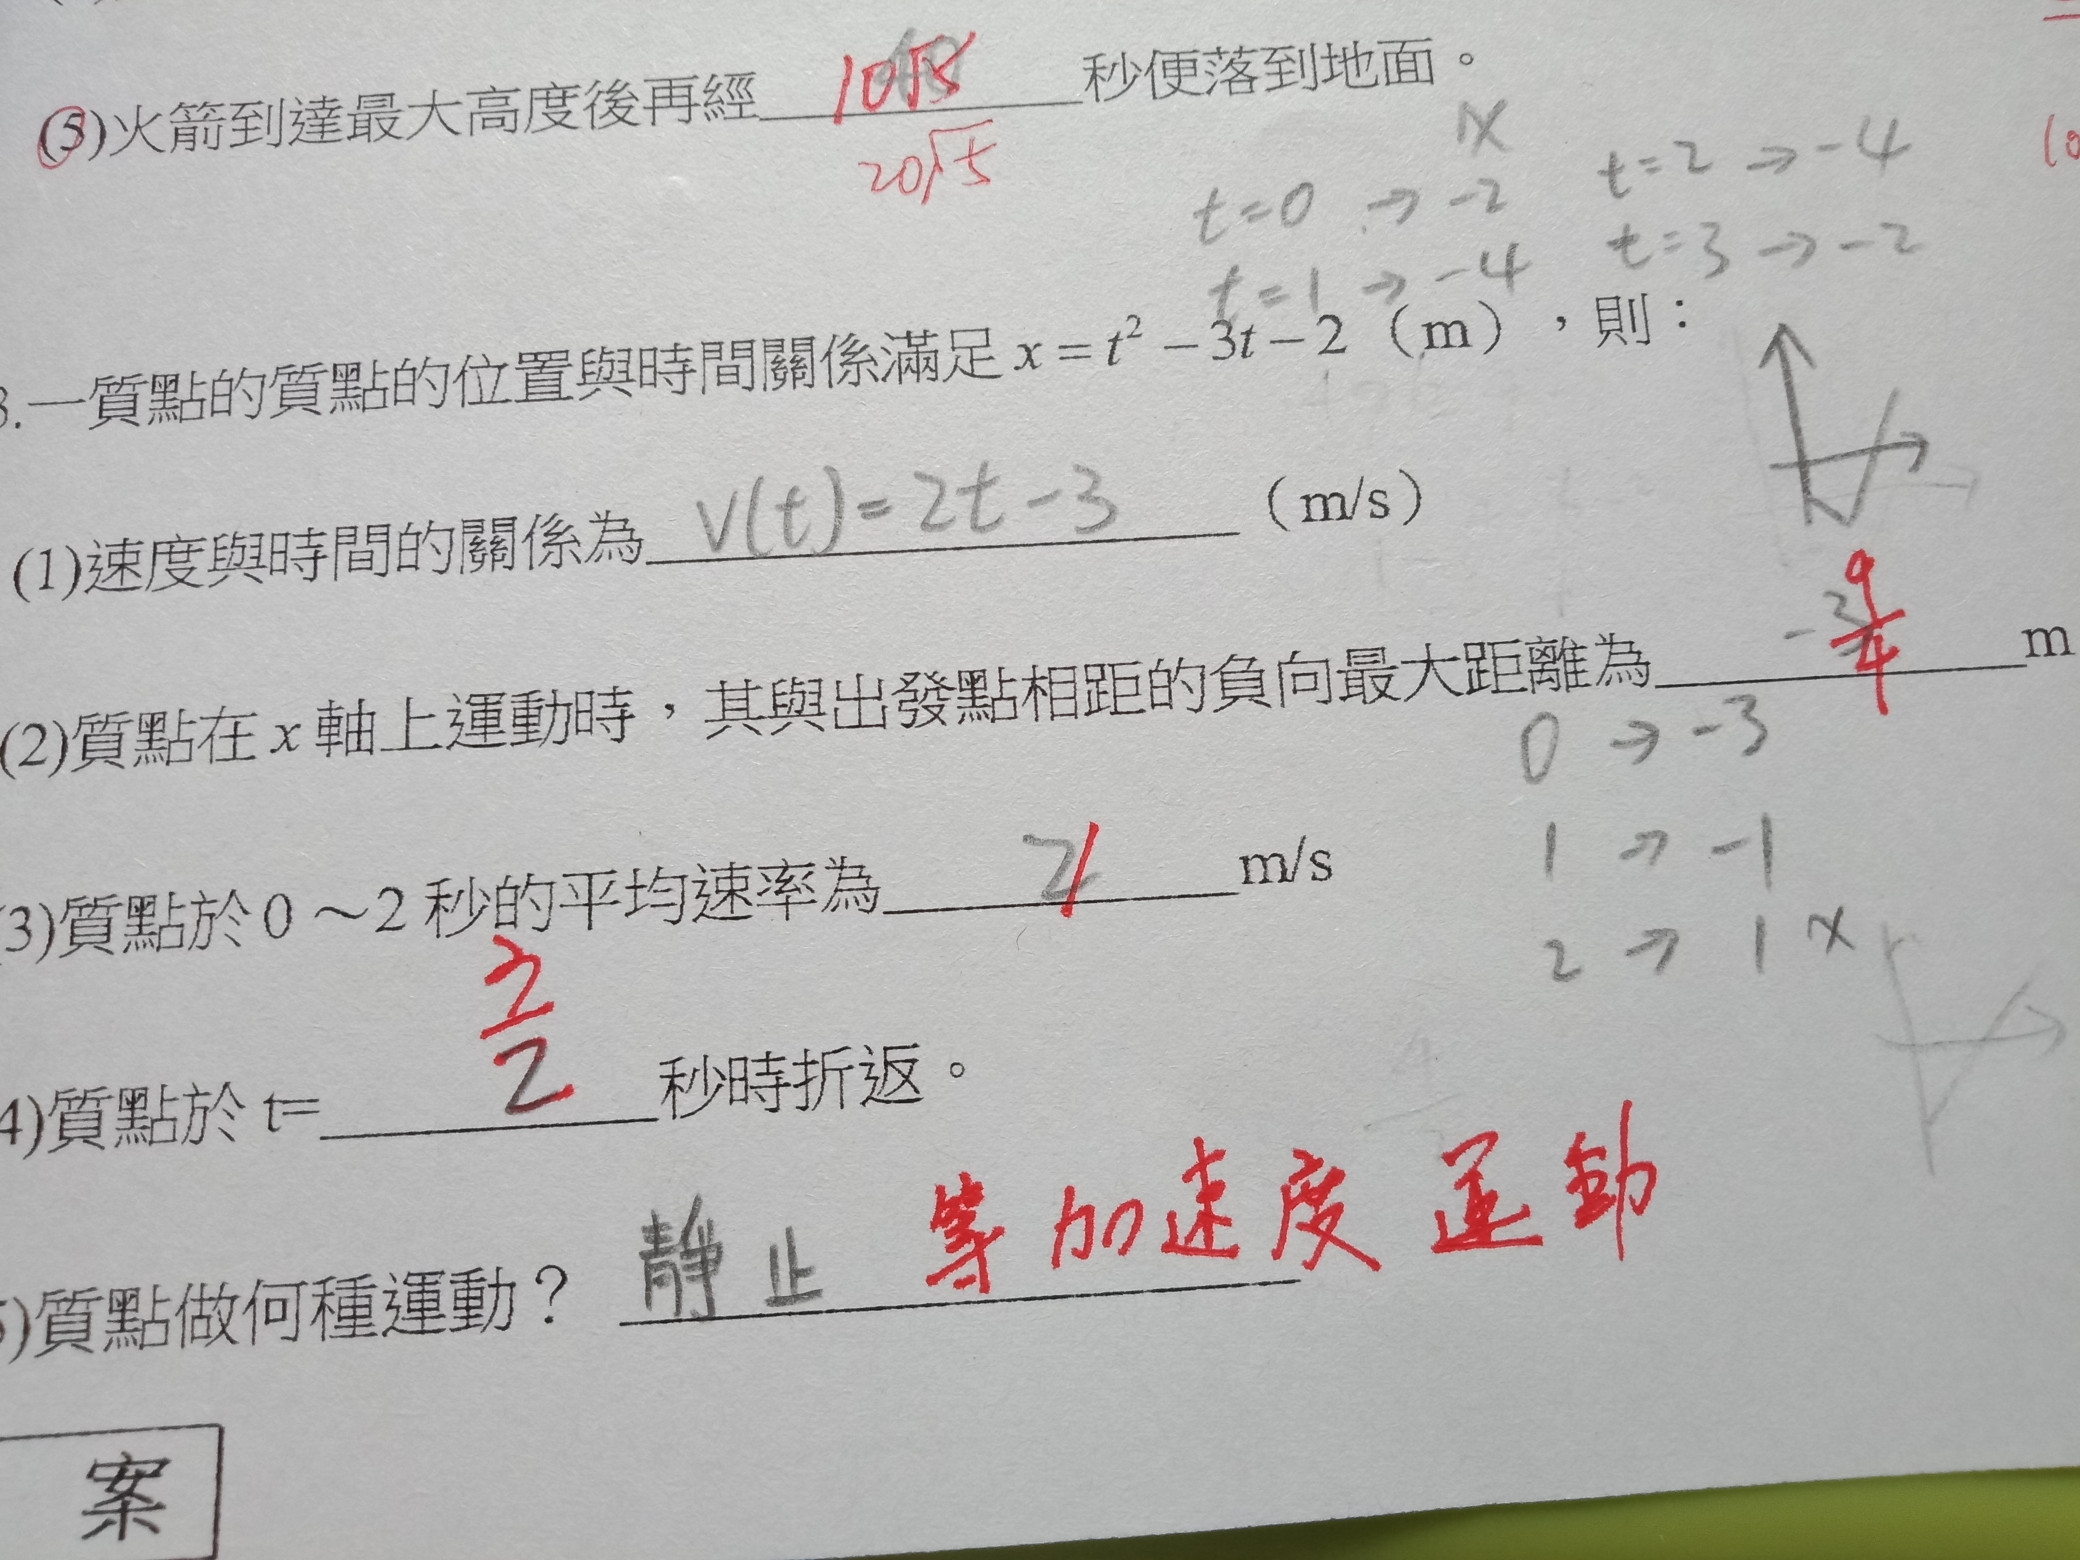 (5)火箭到達最大高度後再經 10√5 秒便落到地面。
20√5
x
t=0 → -2 t=2 → -4
t=1 → -4 t=3 → -2
3.一質點的質點的位置與時間關係滿足 x = t² − 3t − 2（m），則：
(1)速度與時間的關係為 v(t)=2t-3 （m/s）
(2)質點在 x 軸上運動時，其與出發點相距的負向最大距離為 9/4 m
0 → -3
(3)質點於 0～2 秒的平均速率為 2 m/s
1 → -1
2 → 1 x
(4)質點於 t= 秒時折返。
(5)質點做何種運動？ 靜止 等加速度運動
案